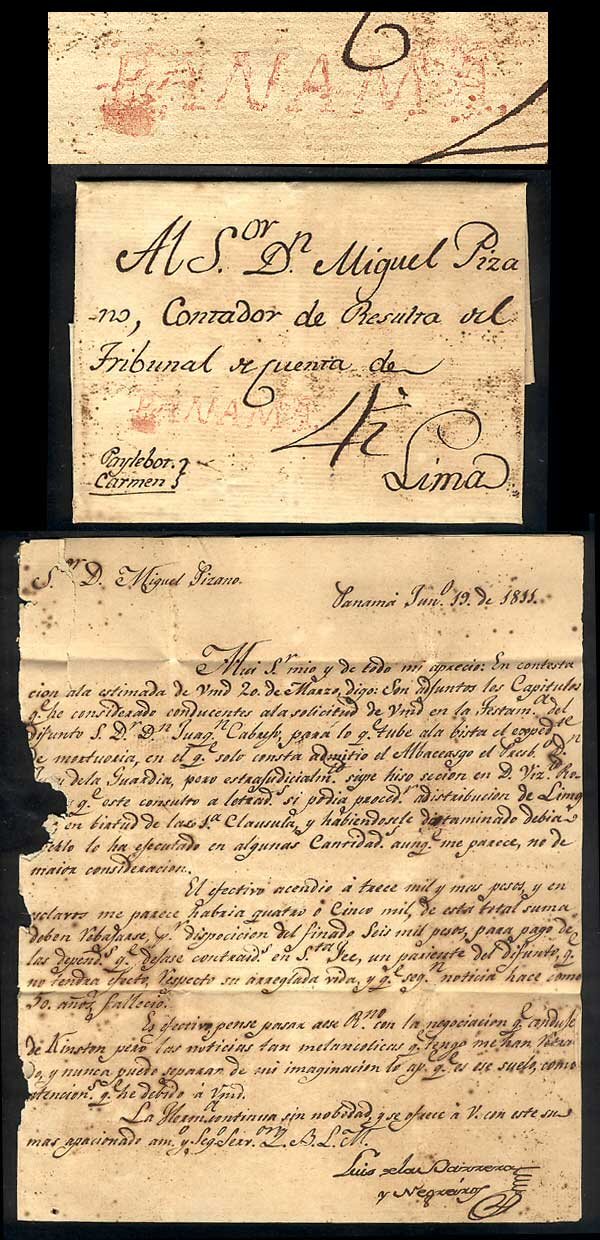 PANAMA
Al S.or D.n Miguel Piza
no, Contador de Resulta del
Tribunal de Cuenta de
PANAMA
Paylebot
Carmen
Lima
S.or D. Miguel Pizano.
Panamá Jun.o 19. de 1811.
Mui S.r mio y de todo mi aprecio: En contesta
cion ala estimada de Vmd 20. de Marzo, digo: Son adjuntos los Capitulos
q.e he considerado conducentes ala solicitud de Vmd en la Testam.a del
difunto S. D.r D.n Juaq.n Cabrejo, para lo q.e tube ala bista el exped.te
de mortuoria, en el q.e solo consta admitio el Albaceasgo el Presb.o D.n
dela Guardia, pero estrajudicialm.te supe hiso secion en D. Viz. Ro
q.e este consulto a letrad.s si podia proced.r adistribucion de Limos
en birtud de las Clausula, y habiendosele dictaminado debia
lo ha efecutado en algunas Cantidad.s aunq.e me parece, no de
maior consideracion.
El efectivo acendio á trece mil y mas pesos, y en
esclavos me parece habria quatro ó Cinco mil, de esta total suma
deben rebajarse, p.r disposicion del finado Seis mil pesos, para pago de
las depend.s q.e dejase contraid.s en S.ta Fee, un pariente del difunto, q.e
no tendra efecto, respecto su arreglada vida, y q.e seg.n noticia hace como
30. años fallecio.
Es efectivo pense pasar aese R.no con la negociacion q.e conduje
de Kinston pero las noticias tan melancolicas q.e tengo me han retra
do, y nunca puedo separar de mi imaginacion lo q.e es ese suelo, como
atencion.s q.e he debido á Vmd.
La Herm.a continua sin nobedad, y se ofrece á V. con este su
mas apacionado am.o y Seg.o Serv.or Q. B. S. M.
Luis dela Barrera
y Negreiros